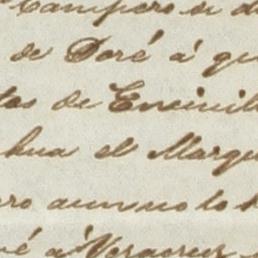 Campero si d
de Doré á qu
tos de Encinill
hua el Marqu
ro aun no lo h
é á Veracruz